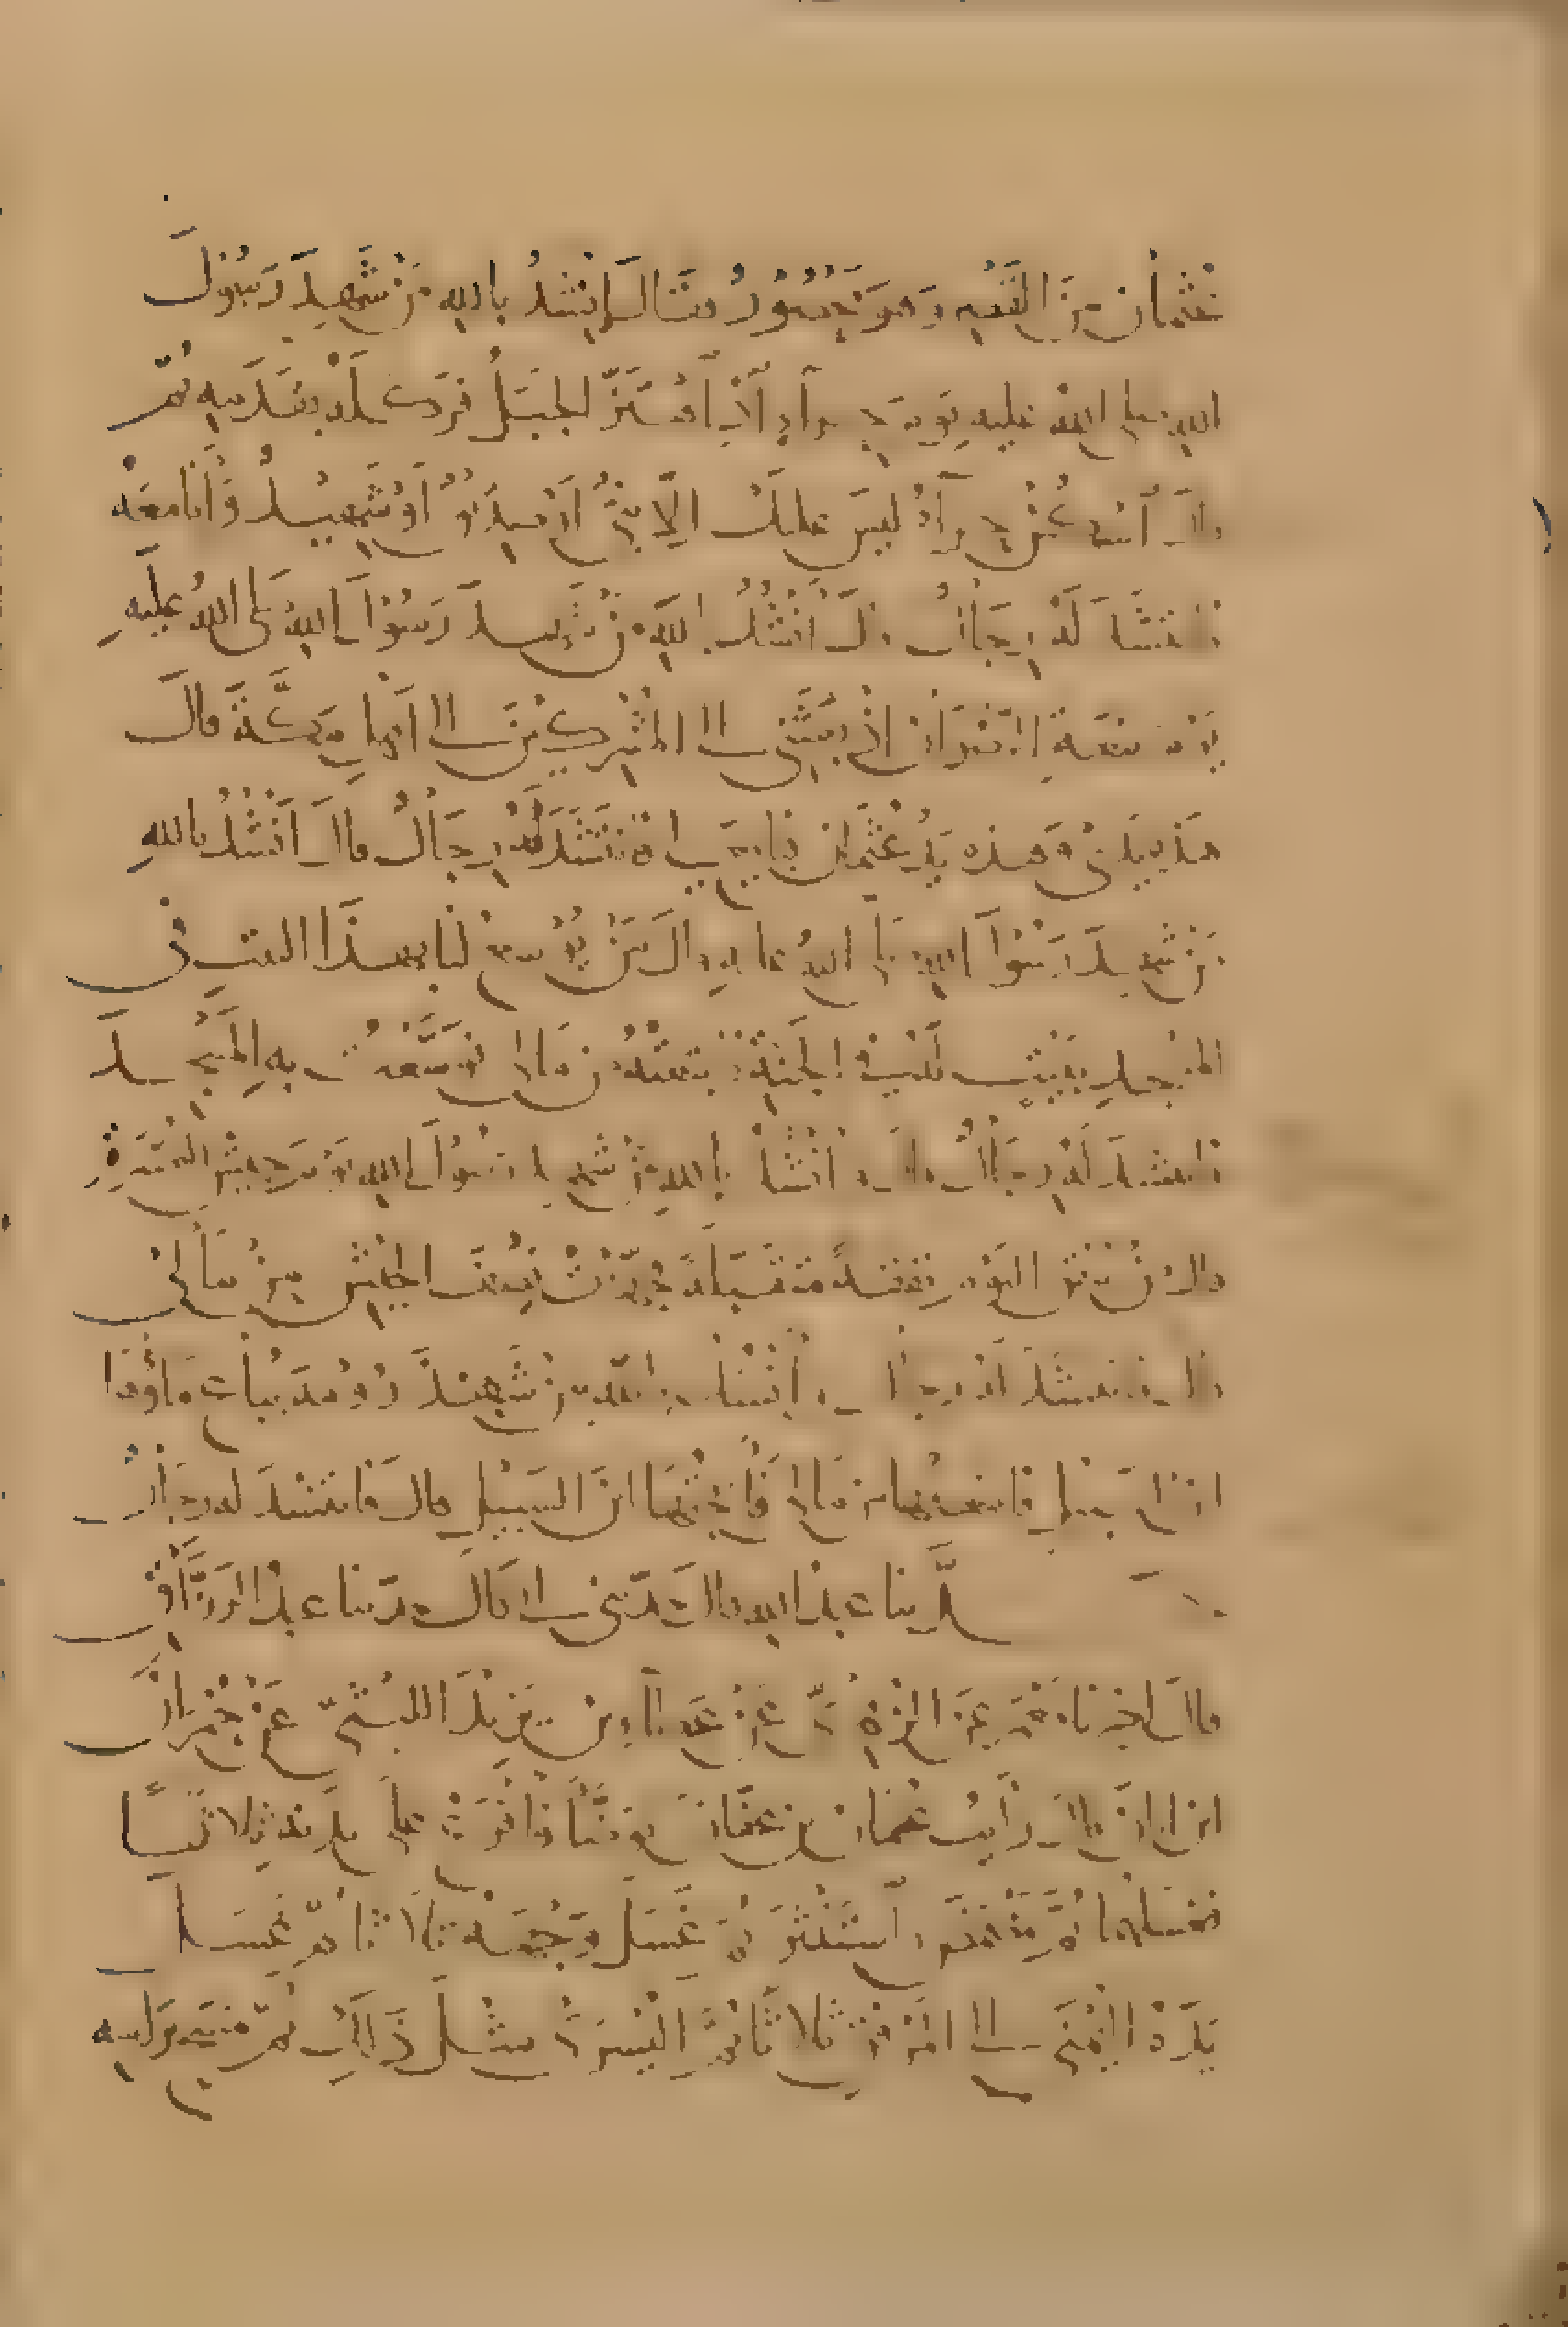 عُثْمان مِنَ القَصْرِ وَهُوَ مَحْصُوْرٌ فقَالَ انْشُدُ باللهِ مَنْ شَهِدَ رَسُوْلَ
اللهِ صلى اللهُ عليهِ يَوْمَ حِراءٍ اذِ اهْتَزَّ الجبَلُ فرَكَلَهُ بقَدَمِهِ ثم
قالَ اسْكُنْ حِرآءُ ليسَ عليكَ الّا نبىٌّ اوْ صِدّيْقٌ اَوْ شَهِيْدٌ وَأَنا مَعَهُ
فانتَشَدَ لَهُ رِجَالٌ قالَ أَنْشُدُ باللهِ مَنْ شَهِدَ رَسُوْلَ اللهِ صَلى اللهُ عَليْهِ
يَوْمَ بيْعَةِ الرّضْوَانِ اذْ بعَثَنى الى المُشْرِكِيْنَ الى اَهْلِ مَكَّةَ قالَ
هَذِهِ يَدِىْ وَهَذِهِ يَدُ عُثْمَانَ فبايَعَ لى فانتَشَدَ لَهُ رِجَالٌ قالَ اَنْشُدُ باللهِ
مَنْ شَهِدَ رَسُوْلَ اللهِ صَلى اللهُ عليهِ قالَ مَنْ يُوَسِّعُ لنا بهذَا البيتِ فى
المَسْجدِ ببَيْتٍ لَهُ فى الجَنّةِ فابْتَعْتُهُ مِن مَالى فوَسَّعْتُ بِهِ المَسْجِدَ
فانتشدَ لَهُ رِجَالٌ قالَ وَأَنْشُدُ باللهِ مَنْ شهِدَ رَسُوْلَ اللهِ يَوْمَ جيشِ العُسْرَةِ
قالَ مَنْ يُنْفِقُ اليَوْمَ نفقةً مُتَقَبَّلَةً فجهّزْتُ نِصْفَ الجَيْشِ مِنْ مَالِىْ
قالَ فانتشَدَ لَهُ رِجَالٌ وَأَنْشُدُ باللهِ مَنْ شَهِدَ رُوْمَةَ يُبَاعُ مَاؤُهَا
ابنَ السَبيْلِ فابتعتُها مِن مَالى فَأَبَحْتُهَا ابنَ السَبيْلِ قالَ فانتشَدَ لهُ رِجَالٌ
حَدّثنا عبدُ اللهِ قالَ حَدّثنى ابى قَالَ حَدّثنا عبدُ الرَزَّاقِ
قالَ اخبرنا مَعْمَرٌ عَنِ الزُهْرِىِّ عَنْ عَطاءِ بنِ يَزِيْدَ اللَيْثىّ عَنْ حُمْرَانَ
ابنِ ابانَ قالَ رَأَيتُ عُثمانَ بن عَفّانَ تَوَضّأَ فافْرَغَ على يدَيهِ ثلاثًا
فغسَلهُما ثُمَّ مَضْمَضَ وَاستَنْثَرَ ثمَّ غسَلَ وَجْهَهُ ثلاَثا ثُمّ غسَلَ
يَدَهُ اليُمْنَى الى المِرْفَقِ ثلاثًا ثُمَّ اليُسْرَى مثْلَ ذَلِكَ ثُمّ مَسَحَ برَأسِهِ